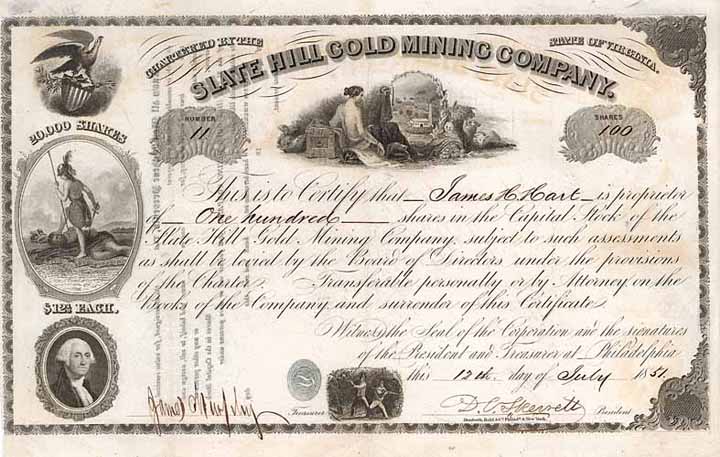 CHARTERED BY THE STATE OF VIRGINIA.
SLATE HILL GOLD MINING COMPANY.
20,000 SHARES
NUMBER
11
SHARES
100
This is to Certify that James H. Hart is proprietor
of One hundred shares in the Capital Stock of the
Slate Hill Gold Mining Company, subject to such assessments
as shall be levied by the Board of Directors under the provisions
of the Charter. Transferable personally or by Attorney, on the
Books of the Company, and surrender of this Certificate.
$12½ EACH.
Witness the Seal of the Corporation and the signatures
of the President and Treasurer at Philadelphia
this 12th day of July 1851
James
Treasurer
D. C. Skerrett
President